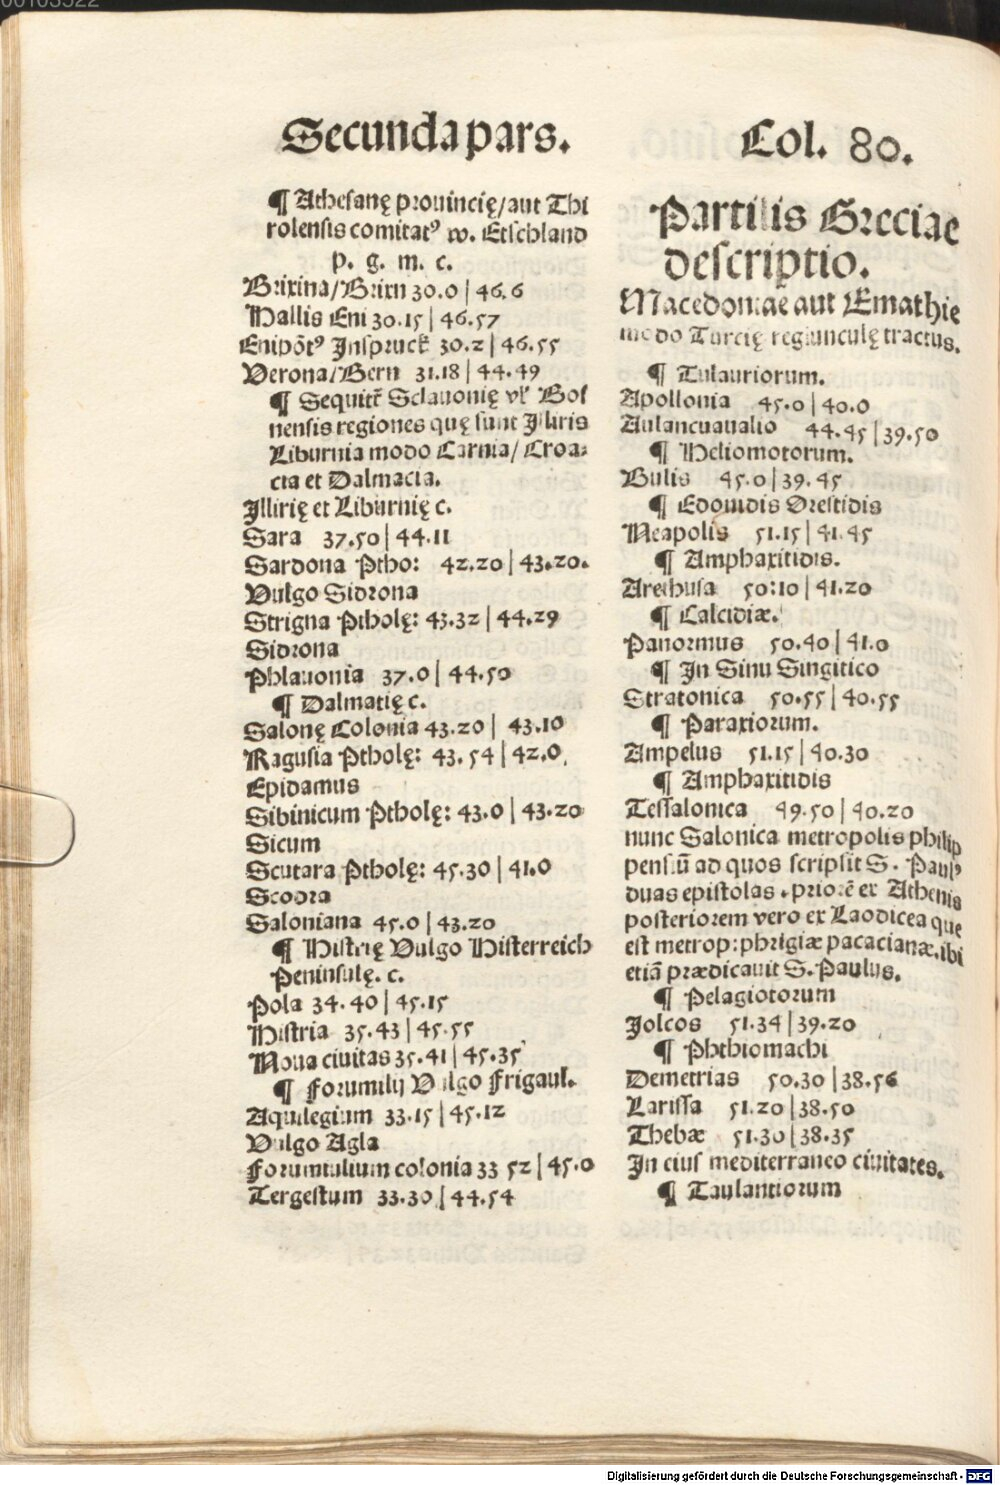 Secunda pars.
¶ Athesanę prouincię/aut Thi
rolensis comitatꝰ w. Etschland
p. g. m. c.
Brixina/Brixn 30.0 | 46.6
Hallis Eni 30.15 | 46.57
Enipōtꝰ Inspruck 30.2 | 46.55
Verona/Bern 31.18 | 44.49
¶ Sequit᷑ Sclauonię vl' Bos
nensis regiones quę sunt Illiris
Liburnia modo Carnia/Croa⸗
cia et Dalmacia.
Illirię et Liburnię c.
Sara 37.50 | 44.11
Sardona Ptho: 42.20 | 43.20.
Vulgo Sidrona
Strigna Ptholę: 43.32 | 44.29
Sidrona
Phlauonia 37.0 | 44.50
¶ Dalmatię c.
Salonę Colonia 43.20 | 43.10
Ragusia Ptholę: 43.54 | 42.0.
Epidamus
Sibinicum Ptholę: 43.0 | 43.20
Sicum
Scutara Ptholę: 45.30 | 41.0
Scodra
Saloniana 45.0 | 43.20
¶ Histrię Vulgo Histerreich
Peninsulę. c.
Pola 34.40 | 45.15
Histria 35.43 | 45.55
Noua ciuitas 35.41 | 45.35
¶ Forumilij Vulgo Frigaul.
Aquilegium 33.15 | 45.12
Vulgo Agla
Forumiulium colonia 33 52 | 45.0
Tergestum 33.30 | 44.54
Col. 80.
Partilis Greciae
descriptio.
Macedoniae aut Emathie
modo Turcię regiunculę tractus.
¶ Tulauriorum.
Apollonia 45.0 | 40.0
Aulancuaualio 44.45 | 39.50
¶ Heliomotorum.
Bulis 45.0 | 39.45
¶ Edonidis Orestidis
Neapolis 51.15 | 41.45
¶ Amphaxitidis.
Arethusa 50:10 | 41.20
¶ Calcidiæ.
Panormus 50.40 | 41.0
¶ In Sinu Singitico
Stratonica 50.55 | 40.55
¶ Paraxiorum.
Ampelus 51.15 | 40.30
¶ Amphaxitidis
Tessalonica 49.50 | 40.20
nunc Salonica metropolis philip
pensiū ad quos scripsit S. Paulꝰ
duas epistolas. priorē ex Athenis
posteriorem vero ex Laodicea que
est metrop: phrigiæ pacacianæ. ibi
etiā prædicauit S. Paulus.
¶ Pelagiotorum
Jolcos 51.34 | 39.20
¶ Phthiomachi
Demetrias 50.30 | 38.56
Larissa 51.20 | 38.50
Thebæ 51.30 | 38.35
In eius mediterraneo ciuitates.
¶ Taulantiorum
Digitalisierung gefördert durch die Deutsche Forschungsgemeinschaft - DFG